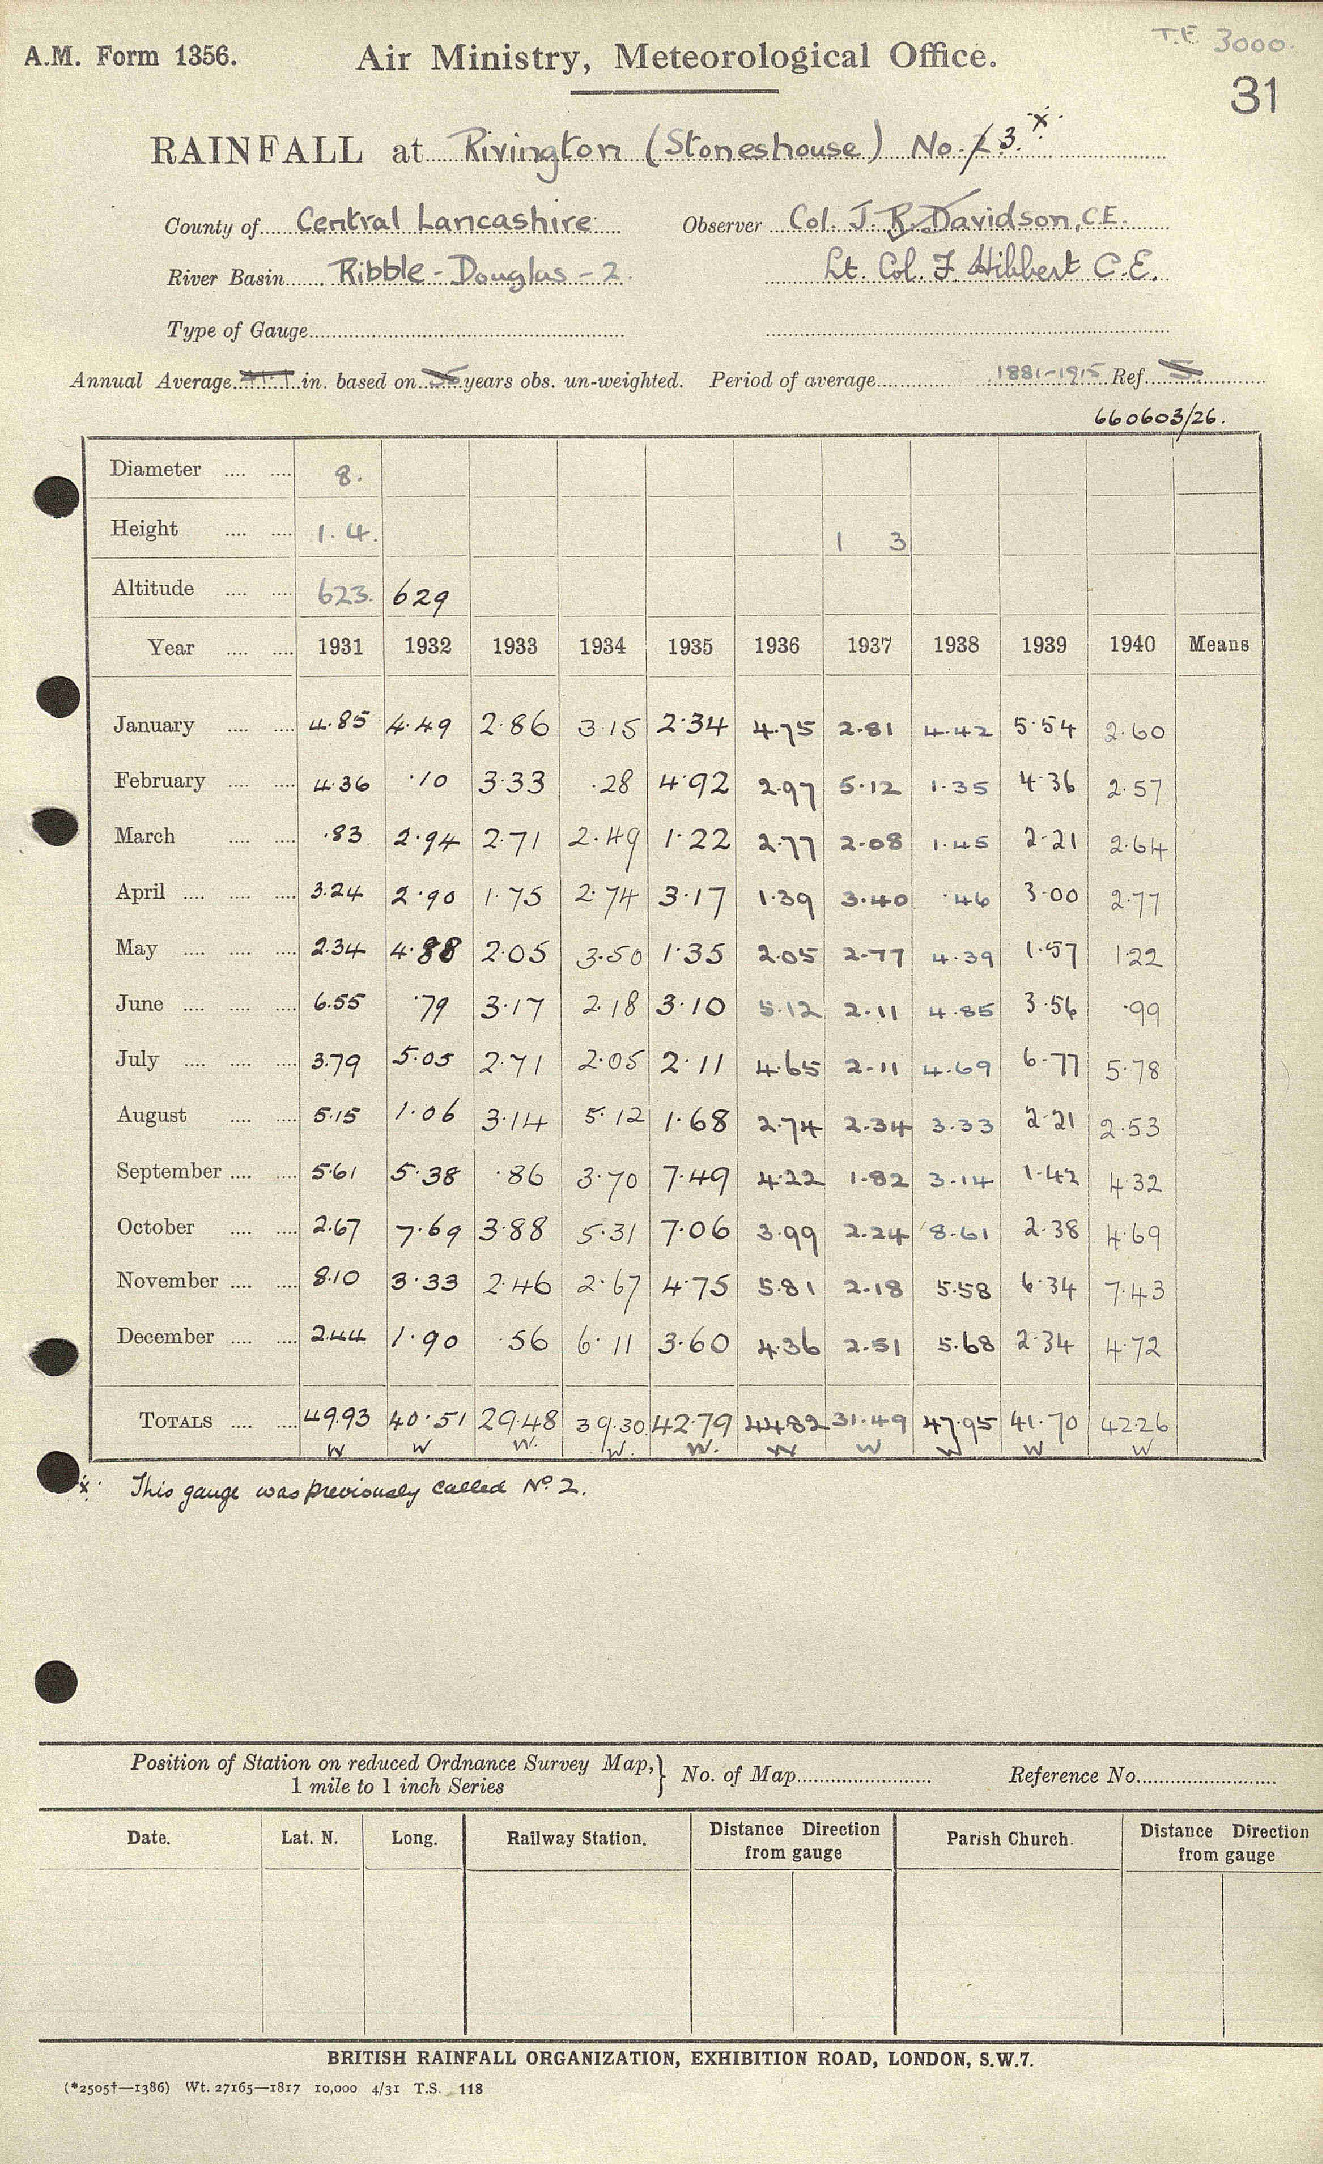 T.F. 3000.
A.M. Form 1356. Air Ministry, Meteorological Office.
31
RAINFALL at Rivington (Stoneshouse) No. 2 3. x
County of Central Lancashire Observer Col. J. R. Davidson, C.E.
River Basin Ribble - Douglas - 2. Lt. Col. F. Hibbert C.E.
Type of Gauge
Annual Average in. based on years obs. un-weighted. Period of average 1881-1915 Ref.
660603/26.
Diameter 8.
Height 1. 4. 1 3
Altitude 623. 629
Year 1931 1932 1933 1934 1935 1936 1937 1938 1939 1940 Means
January 4.85 4.49 2.86 3.15 2.34 4.75 2.81 4.42 5.54 2.60
February 4.36 .10 3.33 .28 4.92 2.97 5.12 1.35 4.36 2.57
March .83 2.94 2.71 2.49 1.22 2.77 2.08 1.45 2.21 2.64
April 3.24 2.90 1.75 2.74 3.17 1.39 3.40 .46 3.00 2.77
May 2.34 4.88 2.05 3.50 1.35 2.05 2.77 4.39 1.57 1.22
June 6.55 .79 3.17 2.18 3.10 5.12 2.11 4.85 3.56 .99
July 3.79 5.05 2.71 2.05 2.11 4.65 2.11 4.69 6.77 5.78
August 5.15 1.06 3.14 5.12 1.68 2.74 2.34 3.33 2.21 2.53
September 5.61 5.38 .86 3.70 7.49 4.22 1.82 3.14 1.42 4.32
October 2.67 7.69 3.88 5.31 7.06 3.99 2.24 8.61 2.38 4.69
November 8.10 3.33 2.46 2.67 4.75 5.81 2.18 5.58 6.34 7.43
December 2.44 1.90 .56 6.11 3.60 4.36 2.51 5.68 2.34 4.72
TOTALS 49.93 40.51 29.48 39.30 42.79 44.82 31.49 47.95 41.70 42.26
W W W. W. W. W W W W W
x This gauge was previously called No. 2.
Position of Station on reduced Ordnance Survey Map, } No. of Map Reference No.
1 mile to 1 inch Series
Date. Lat. N. Long. Railway Station. Distance Direction from gauge Parish Church. Distance Direction from gauge
BRITISH RAINFALL ORGANIZATION, EXHIBITION ROAD, LONDON, S.W.7.
(*2505†—1386) Wt. 27165—1817 10,000 4/31 T.S. 118